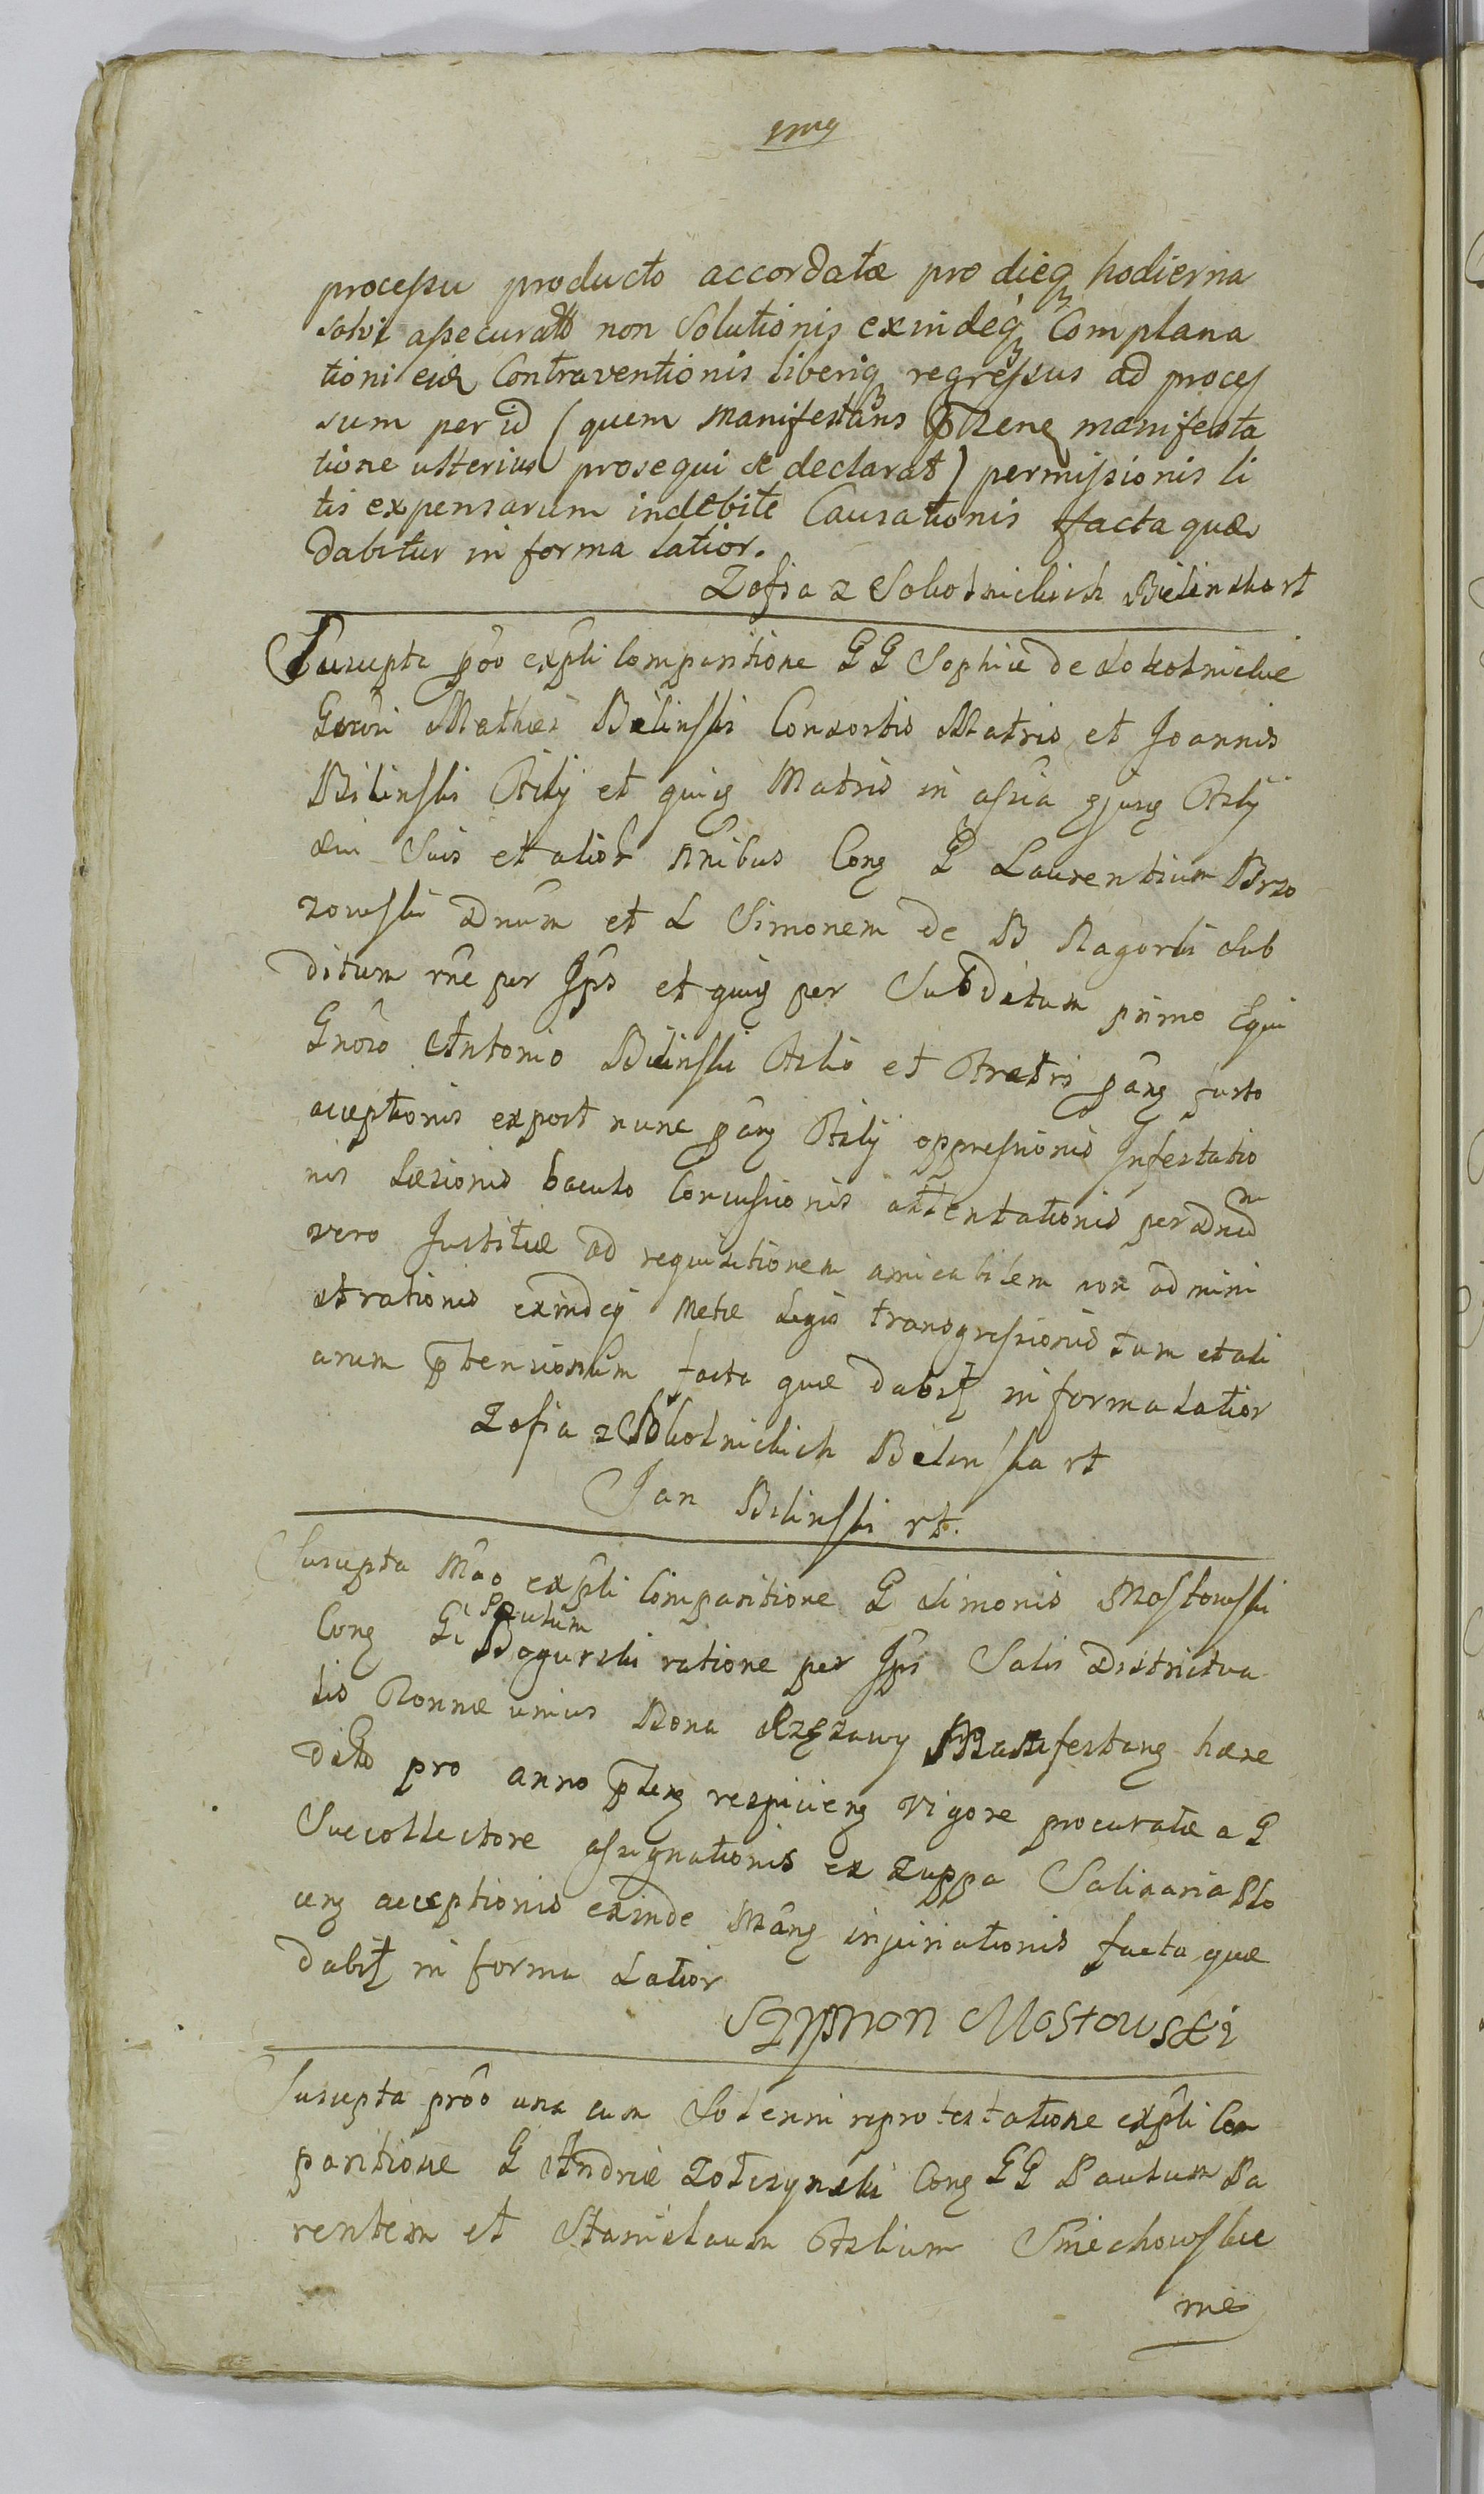 processu producto accordatæ pro dieq hodierna
solvi assecurato non Solutionis exindeq Complana
tioni eius Contraventionis liberiq regressus ad proces
sum per id (quem Manifestans pttene manifesta
tione ulterius prosequi se declarat) permissionis li
tis expensarum indebite Causationis facta quæ
dabitur in forma latior.
Zofia z Sokolnickich Bielinska rt
Suscepta pro expli Comparitione GG Sophiæ de Sokolnickie
Gnrdi Mathei Bilinski Consortis Matris et Joannis
Bilinski Filij et quiq Matris in assia ejusq Filij
sui Suis et alior nnibus Cong G Laurentium Brzo
zowski Dnum et L Simonem de B Nagorki Sub
ditum rne per Ips et quiq per Subditum primo Equi
Gnoso Antonio Bilinski Filio et Fratris pang furto
acceptionis expost nunc pang Filij oppressionis Infestatio
nis Læsionis baculo Concussionis attentationis per Dnum
vero Justitiæ ad requisitionem amicabilem non admini
strationis exindeq Metæ Legis transgressionis tum et ali
arum ptensionum facta quæ dabit in forma Latior
Zofia z Sokolnickich Bilinska rt
Jan Bilinski rt.
Suscepta Mao expli Comparitione G Simonis Mostowski
Cong G Paulum
Bogurski ratione per Ips Salis Districtua
lis Tonnæ unius Bona Rzęzawy Manifestang hære
dito pro anno pttenq respicienq vigore procuratæ a G
Succollectore assignationis ex Zuppa Salinaria Slo
ceng acceptionis exinde Mang injuriationis facta quæ
dabit in forma Latior
Szymon Mostowski
Suscepta pro una cum Solenni reprotestatione expli Com
paritione G Andreæ Zolczynski Cong GG Paulum Pa
rentem et Stanislaum Filium Smiechowskie
rne